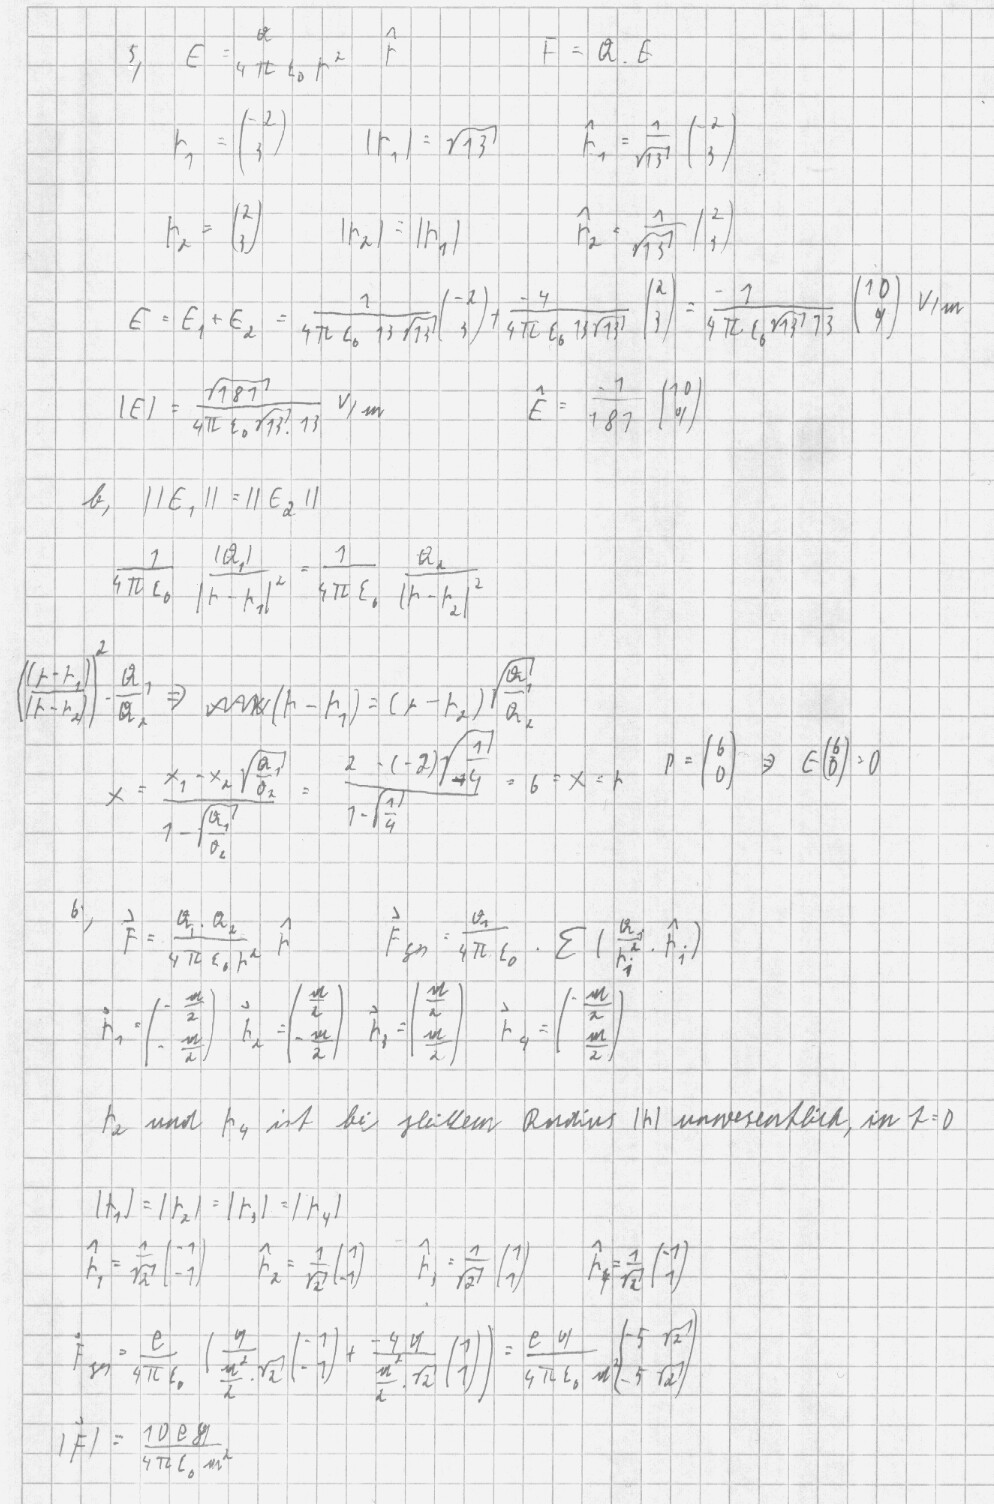 5, E = Q / (4 π ε₀ r²) r̂     F = Q . E
r₁ = (-2 3)   |r₁| = √13   r̂₁ = 1/√13 (-2 3)
r₂ = (2 3)   |r₂| = |r₁|   r̂₂ = 1/√13 (2 3)
E = E₁ + E₂ = 1/(4 π ε₀ 13 √13) (-2 3) + -4/(4 π ε₀ 13 √13) (2 3) = -1/(4 π ε₀ √13 13) (10 9) V/m
|E| = √181/(4π ε₀ √13 . 13) V/m   Ê = -1/181 (10 9)
b, ||E₁|| = ||E₂||
1/(4π ε₀) |Q₁|/|r - r₁|² = 1/(4π ε₀) Q₂/|r - r₂|²
((r - r₁)/(r - r₂))² = Q₁/Q₂ ⇒ (r - r₁) = (r - r₂) √(Q₁/Q₂)
x = (x₁ - x₂ √(Q₁/Q₂))/(1 - √(Q₁/Q₂)) = (2 - (-2) √(1/4))/(1 - √(1/4)) = 6 = x = r   P = (6 0) ⇒ E(6 0) = 0
6, F⃗ = Q₁ . Q₂/(4 π ε₀ r²) r̂   F⃗ges = Q₁/(4 π ε₀) . Σ (Qᵢ/rᵢ² . r̂ᵢ)
r⃗₁ = (-a/2 -a/2)   r⃗₂ = (a/2 -a/2)   r⃗₃ = (a/2 a/2)   r⃗₄ = (-a/2 a/2)
r₂ und r₄ ist bei gleichem Radius |r| unwesentlich, in t=0
|r₁| = |r₂| = |r₃| = |r₄|
r̂₁ = 1/√2 (-1 -1)   r̂₂ = 1/√2 (1 -1)   r̂₃ = 1/√2 (1 1)   r̂₄ = 1/√2 (-1 1)
F⃗ges = e/(4π ε₀) (q/(a²/2 . √2) (-1 -1) + -4q/(a²/2 . √2) (1 1)) = e q/(4 π ε₀ a²) (-5 √2 -5 √2)
|F⃗| = 10 e q/(4 π ε₀ a²)